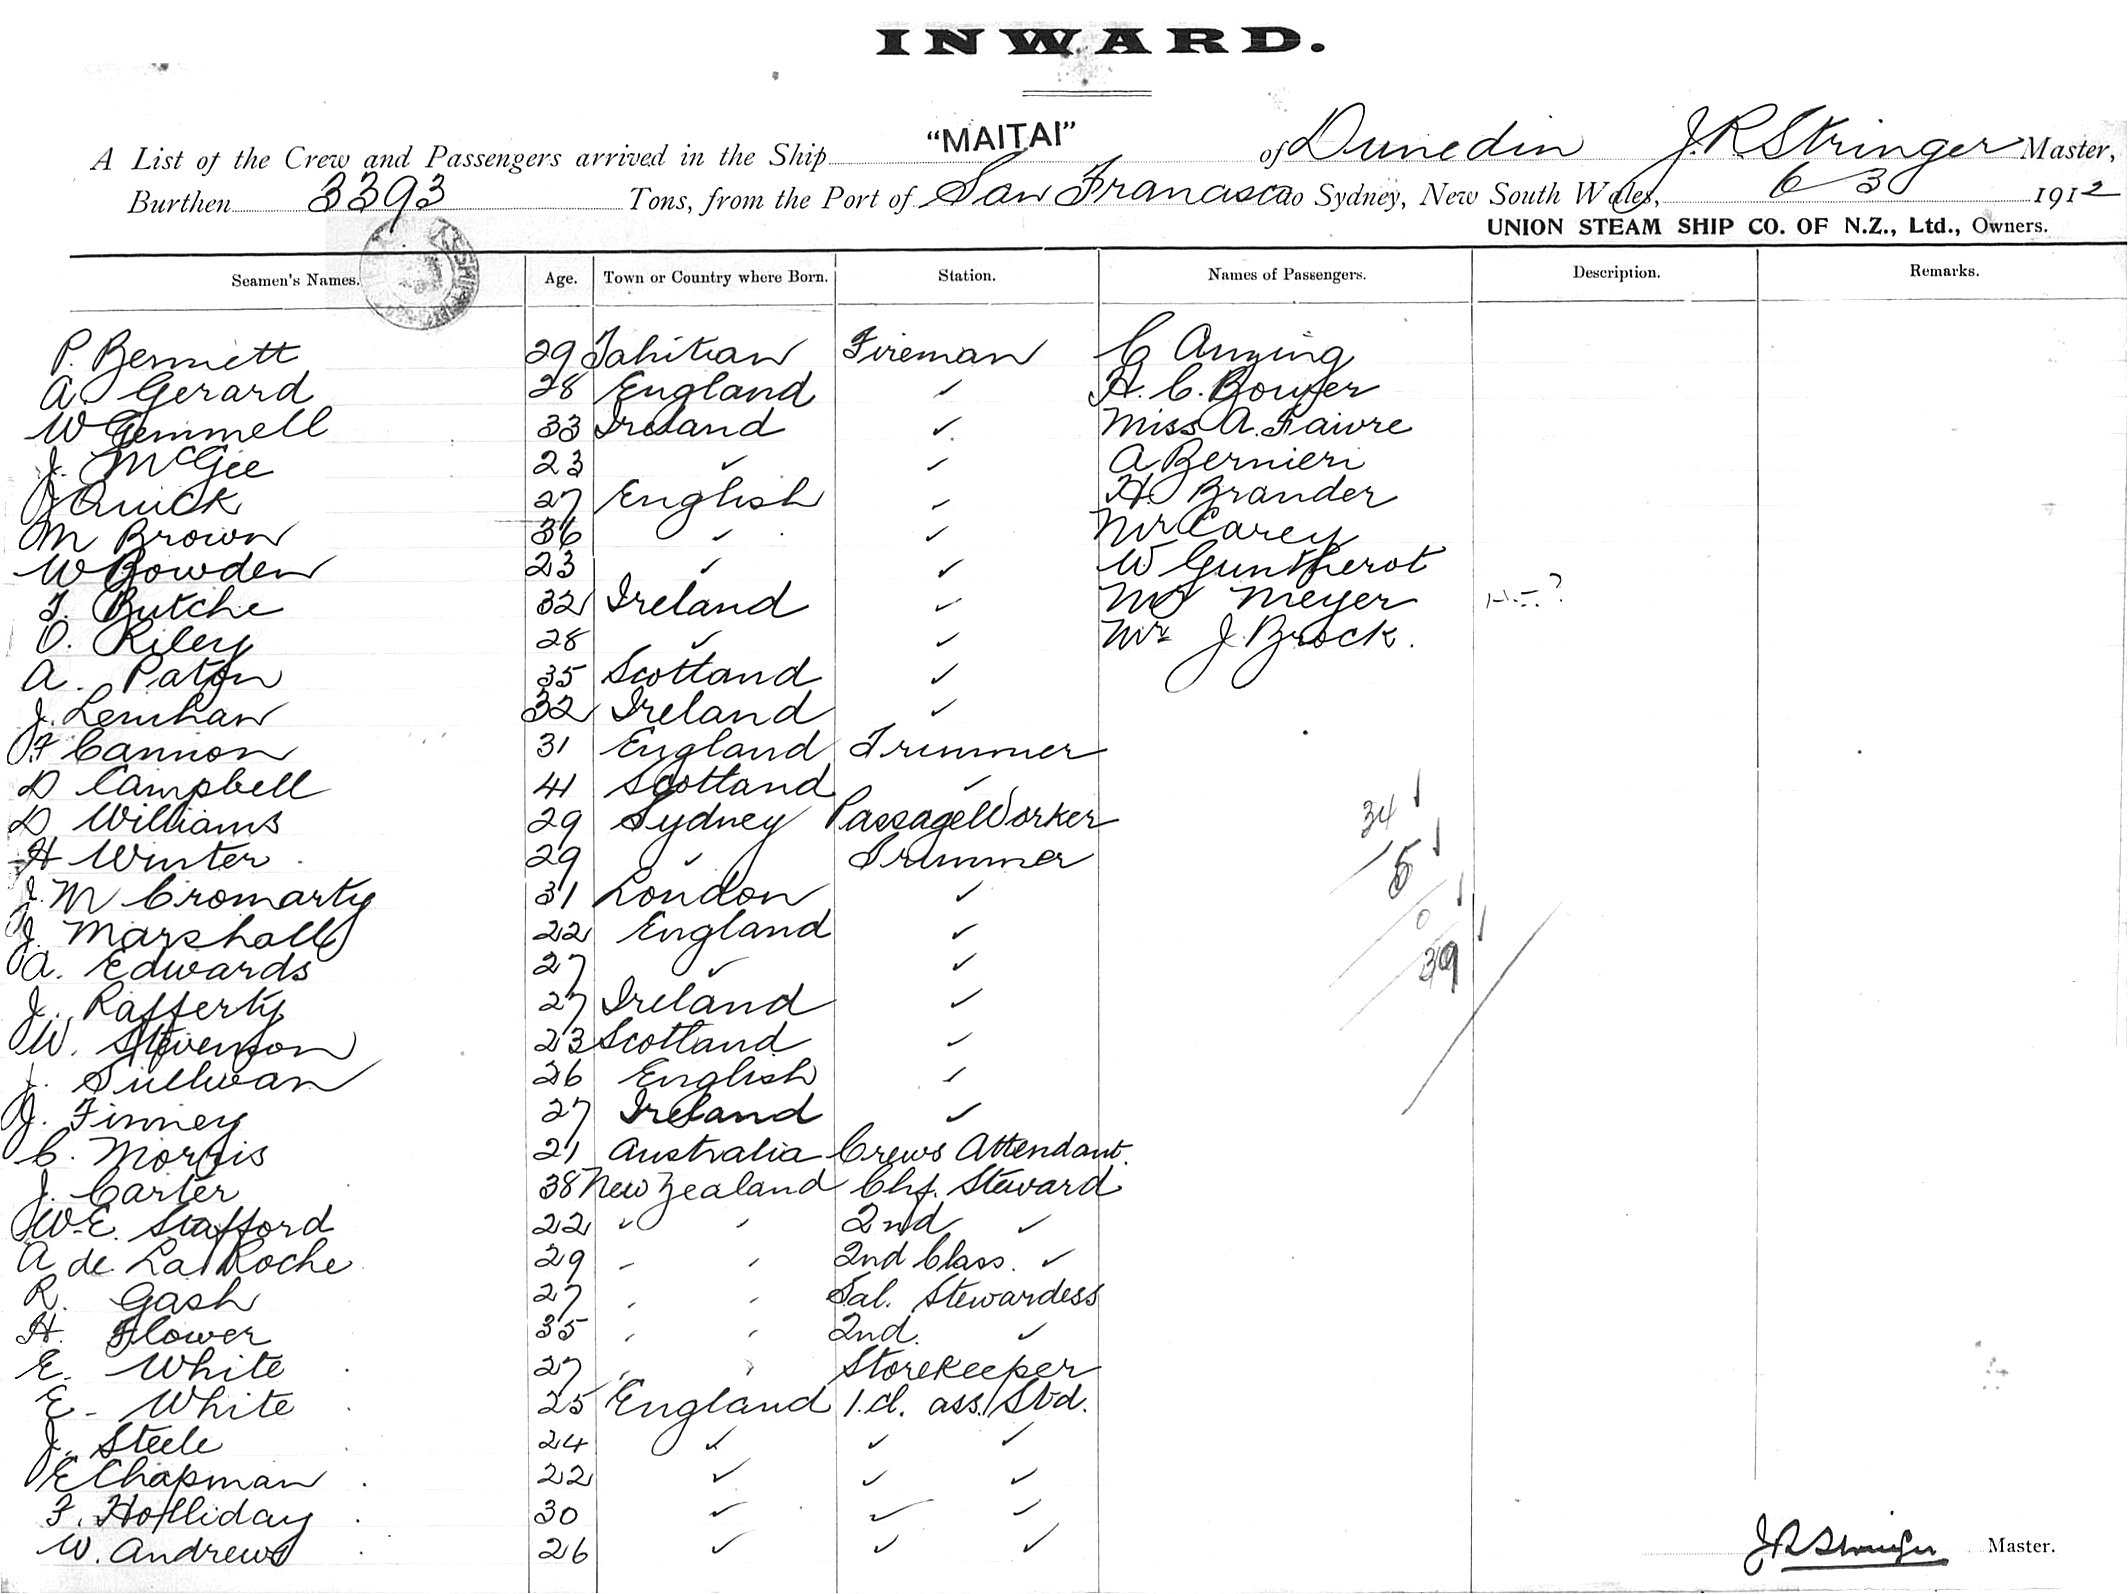 INWARD.
A List of the Crew and Passengers arrived in the Ship "MAITAI" of Dunedin J.R. Stringer Master,
Burthen 3393 Tons, from the Port of San Francisco to Sydney, New South Wales, 6 3 1912
UNION STEAM SHIP CO. OF N.Z., Ltd., Owners.
Seamen's Names. Age. Town or Country where Born. Station. Names of Passengers. Description. Remarks.
P. Bennett 29 Tahitian Fireman C
A. Gerard 28 England ✓ H. C. Bowyer
W Gemmell 33 Ireland ✓ Miss A. Faivre
J. McGee 23 ✓ ✓ A Bernieri
J Quick 27 English ✓ H. Brander
M Brown 36 ✓ ✓ Mr Carey
W Bowden 23 ✓ ✓ W Guntherot
T. Butche 32 Ireland ✓ Mr Meyer
O. Riley 28 ✓ ✓ Mr J. Brock.
A. Paton 35 Scotland ✓
J. Lenihan 32 Ireland ✓
F Cannon 31 England Trimmer
D Campbell 41 Scotland ✓
D Williams 29 Sydney Passage Worker
H Winter 29 ✓ Trimmer
J. M Cromarty 31 London ✓
J. Marshall 22 England ✓
A. Edwards 27 ✓ ✓
J. Rafferty 27 Ireland ✓
W. Stevenson 23 Scotland ✓
J. Sullivan 26 English ✓
J. Finney 27 Ireland ✓
C. Morris 21 Australia Crews Attendant.
J. Carter 38 New Zealand Chf. Steward
W. E. Stafford 22 " " 2nd ✓
A de La Roche 29 " " 2nd Class. ✓
R. Gash 27 " " Sal. Stewardess
H. Flower 35 " " 2nd. ✓
E. White 27 " " Storekeeper
E. White 25 England 1.cl. ass. Std.
J. Steele 24 ✓ ✓ ✓
E Chapman 22 ✓ ✓ ✓
F. Holliday 30 ✓ ✓ ✓
W. Andrews 26 ✓ ✓ ✓
34
5
0
39
J R Stringer Master.